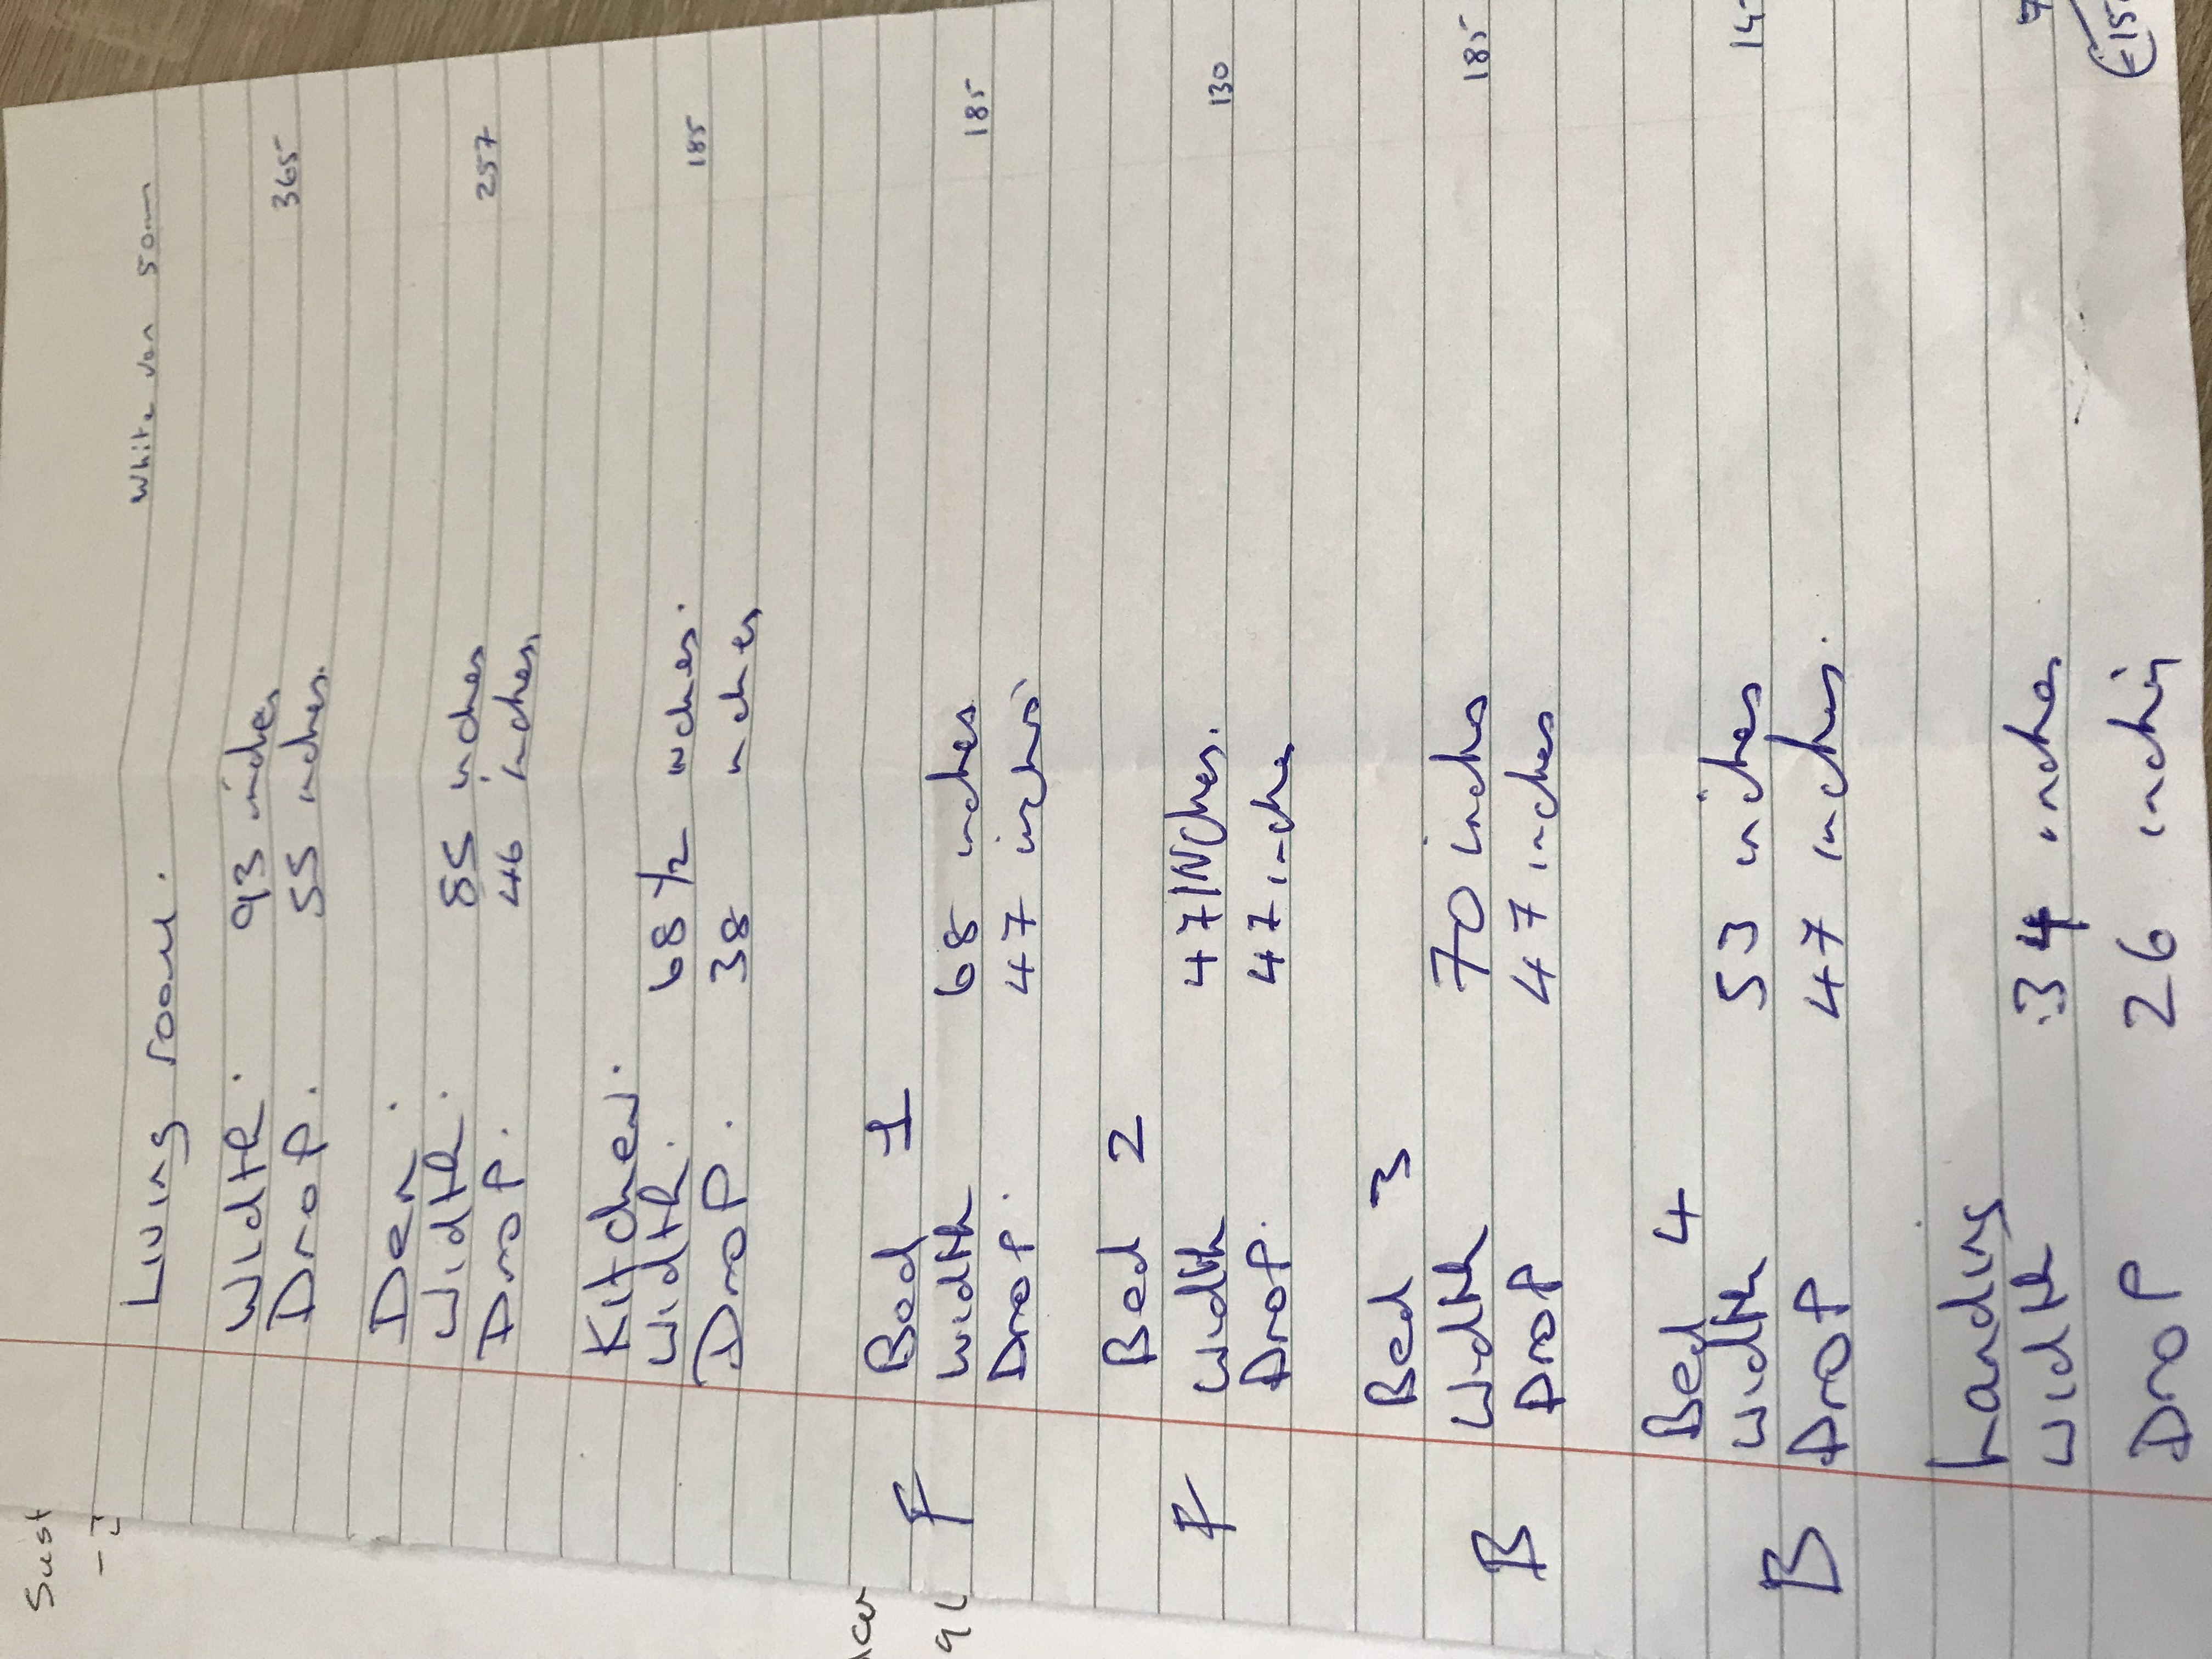 White ven 50mm
Living room.
Width. 93 inches 365
Drop. 55 inches.
Den.
Width. 85 inches 257
Drop. 46 inches.
Kitchen.
Width. 68 1/2 inches. 185
Drop. 38 inches
Bed 1
F Width 68 inches 185
Drop. 47 inches
Bed 2
F Width 47 INches. 130
Drop. 47 inche
Bed 3
B Width 70 inches 185
Drop 47 inches
Bed 4
B Width 53 inches 14
Drop 47 inches.
Landing
Width 34 inches
Drop 26 inches
Sust